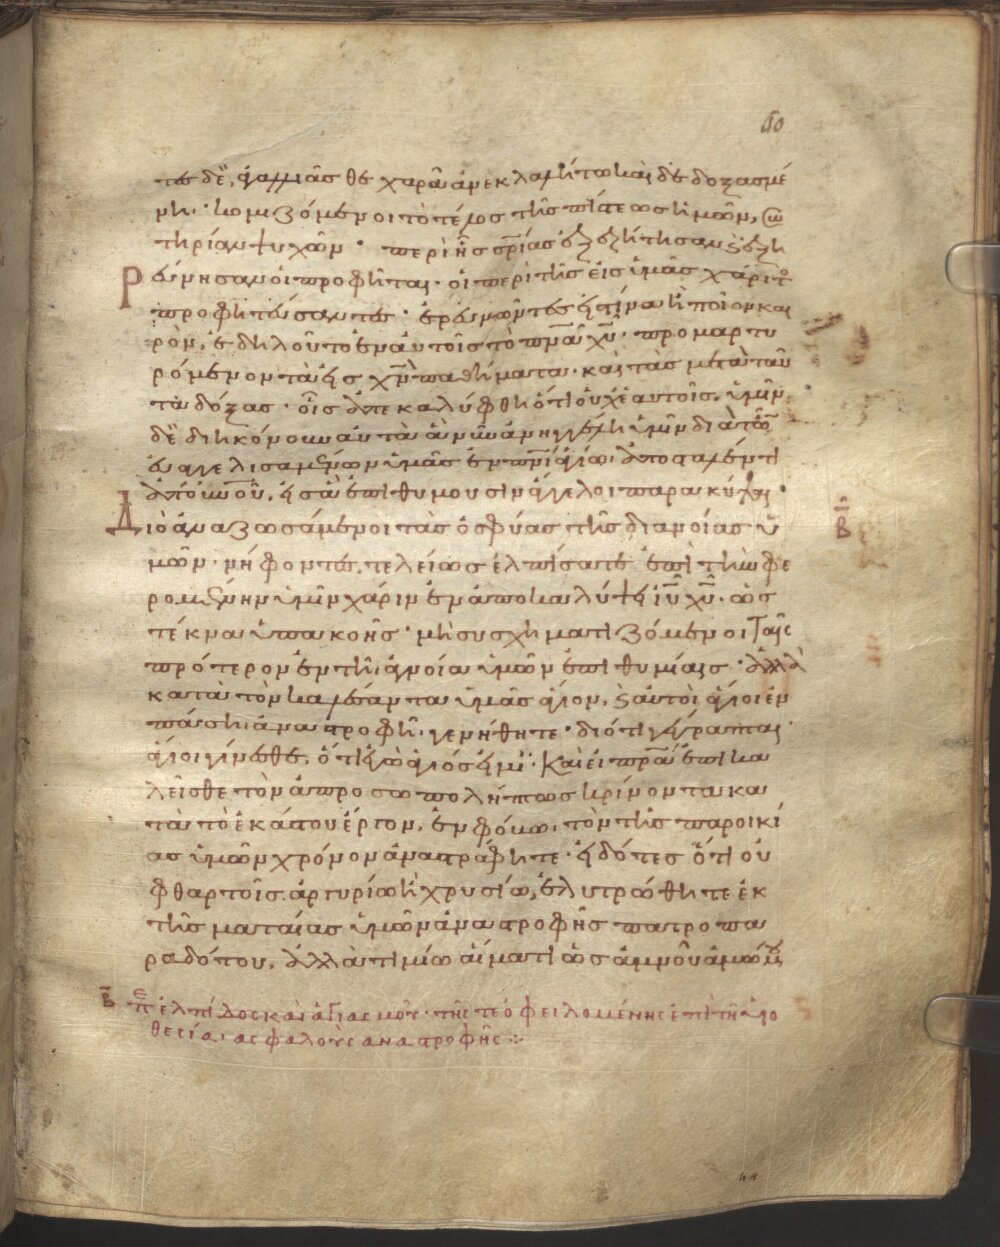 60
τες δὲ, ἀγαλλιᾶσθε χαρᾶ ἀνεκλαλήτω καὶ δεδοξασμέ
νη· κομιζόμενοι τὸ τέλος τῆς πίστεως ἡμῶν, σω
τηρίαν ψυχῶν· περὶ ἧς σρίας ἐξεζήτησαν καὶ ἐξη
ρεύνησαν οἱ προφῆται· οἱ περὶ τῆς εἰς ὑμᾶς χάριτο
προφητεύσαντες· ἐρευνῶντες εἰς τίνα ἢ ποῖον και
ρὸν, ἐδηλοῦτο ἐν αὐτοῖς τὸ πνα χυ· προμαρτυ
ρόμενον τὰ εἰς χν παθήματα· καὶ τὰς μετὰ ταῦ
τα δόξας· οἷς ἀπεκαλύφθη ὅτι οὐχ ἑαυτοῖς, ὑμῖν
δὲ διηκόνουν αὐτὰ ἃ νῦν ἀνηγγέλη ὑμῖν διὰ τῶν
εὐαγγελισαμένων ὑμᾶς ἐν πνι ἁγίω· ἀποσταλέντι
ἀπ' οὐνου, εἰς ἃ ἐπιθυμουσιν ἄγγελοι παρακύψαι·
Διὸ ἀναζωσάμενοι τὰς ὀσφύας τῆς διανοίας ὑ
μῶν· νήφοντες, τελείως ἐλπίσατε ἐπὶ τὴν φε
ρομένην ὑμῖν χάριν ἐν ἀποκαλύψει ιυ χυ· ὡς
τέκνα ὑπακοῆς· μὴ συσχηματιζόμενοι ταῖς
πρότερον ἐν τῆ ἀγνοία ὑμῶν ἐπιθυμίαις· ἀλλὰ
κατὰ τὸν καλέσαντα ὑμᾶς ἅγιον, καὶ αὐτοὶ ἅγιοι ἐν
πάση ἀναστροφῆ· γενήθητε· διότι γέγραπται·
ἅγιοι γίνεσθε, ὅτι ἐγὼ ἅγιός εἰμι· Καὶ εἰ πρα ἐπικα
λεῖσθε τὸν ἀπροσωπολήπτως κρίνοντα κα
τὰ τὸ ἑκάστου ἔργον, ἐν φόβω, τὸν τῆς παροικί
ας ὑμῶν χρόνον ἀναστράφητε· εἰδότες ὅτι οὐ
φθαρτοῖς, ἀργυρίω ἢ χρυσίω, ἐλυτρώθητε ἐκ
τῆς ματαίας ὑμῶν ἀναστροφῆς πατροπα
ραδότου, ἀλλὰ τιμίω αἵματι ὡς ἀμνοῦ ἀμώμου
β
β περὶ ἐλπίδος καὶ ἁγιασμοῦ· τῆς τε ὀφειλομένης ἐπὶ τῆ υἱο
θεσία· ἀσφαλοῦς ἀναστροφῆς